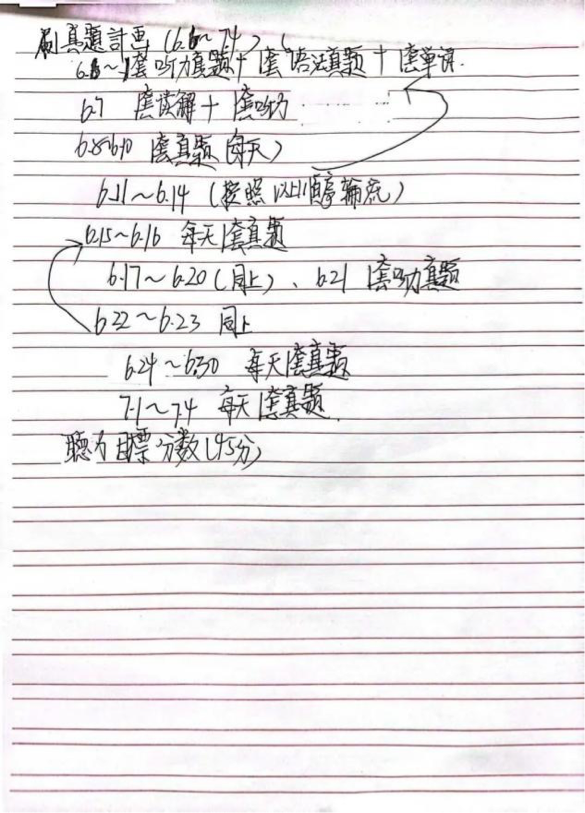 刷真題計畫(6.6~7.4)
6.6~1套听力真题+1套语法真题+1套单词
6.7 1套读解+1套听力
6.8~6.10 1套真题(每天)
6.11~6.14(按照以上顺序轮流)
6.15~6.16 每天1套真题
6.17~6.20(同上)、6.21 1套听力真题
6.22~6.23 同上
6.24~6.30 每天1套真题
7.1~7.4 每天1套真题
聽力目标分数(45分)